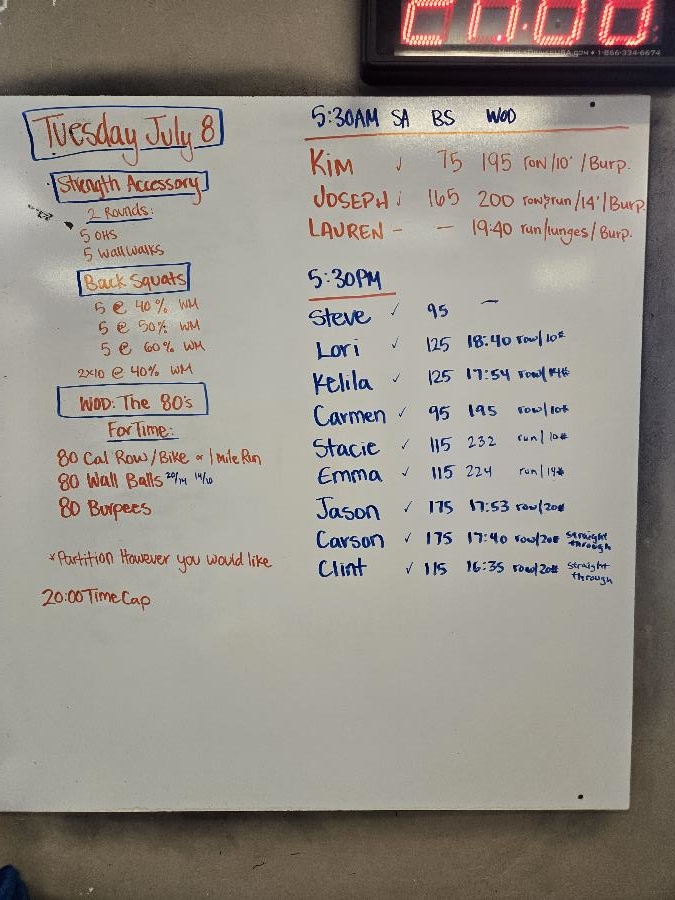 21:00
1-866-334-6674
Tuesday July 8
Strength Accessory
2 Rounds:
5 OHS
5 Wall Walks
Back Squats
5 @ 40% WM
5 @ 50% WM
5 @ 60% WM
2x10 @ 40% WM
WOD: The 80's
For Time:
80 Cal Row/Bike or 1 mile Run
80 Wall Balls 20/14 14/10
80 Burpees
*Partition However you would like
20:00 Time Cap
5:30AM SA BS WOD
Kim ✓ 75 195 row/10'/Burp.
Joseph ✓ 165 200 row&run/14'/Burp
Lauren - - 19:40 run/lunges/Burp.
5:30PM
Steve ✓ 95 -
Lori ✓ 125 18:40 row/10#
Kelila ✓ 125 17:54 row/14#
Carmen ✓ 95 195 row/10#
Stacie ✓ 115 232 run/10#
Emma ✓ 115 224 run/14#
Jason ✓ 175 17:53 row/20#
Carson ✓ 175 17:40 row/20# straight through
Clint ✓ 115 16:35 row/20# straight through